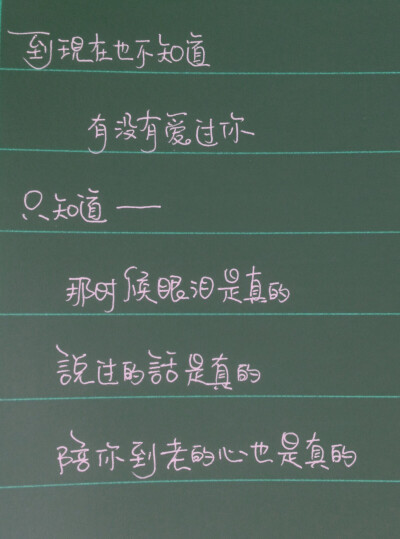 到現在也不知道
有没有爱过你
只知道——
那时候眼泪是真的
說过的話是真的
陪你到老的心也是真的